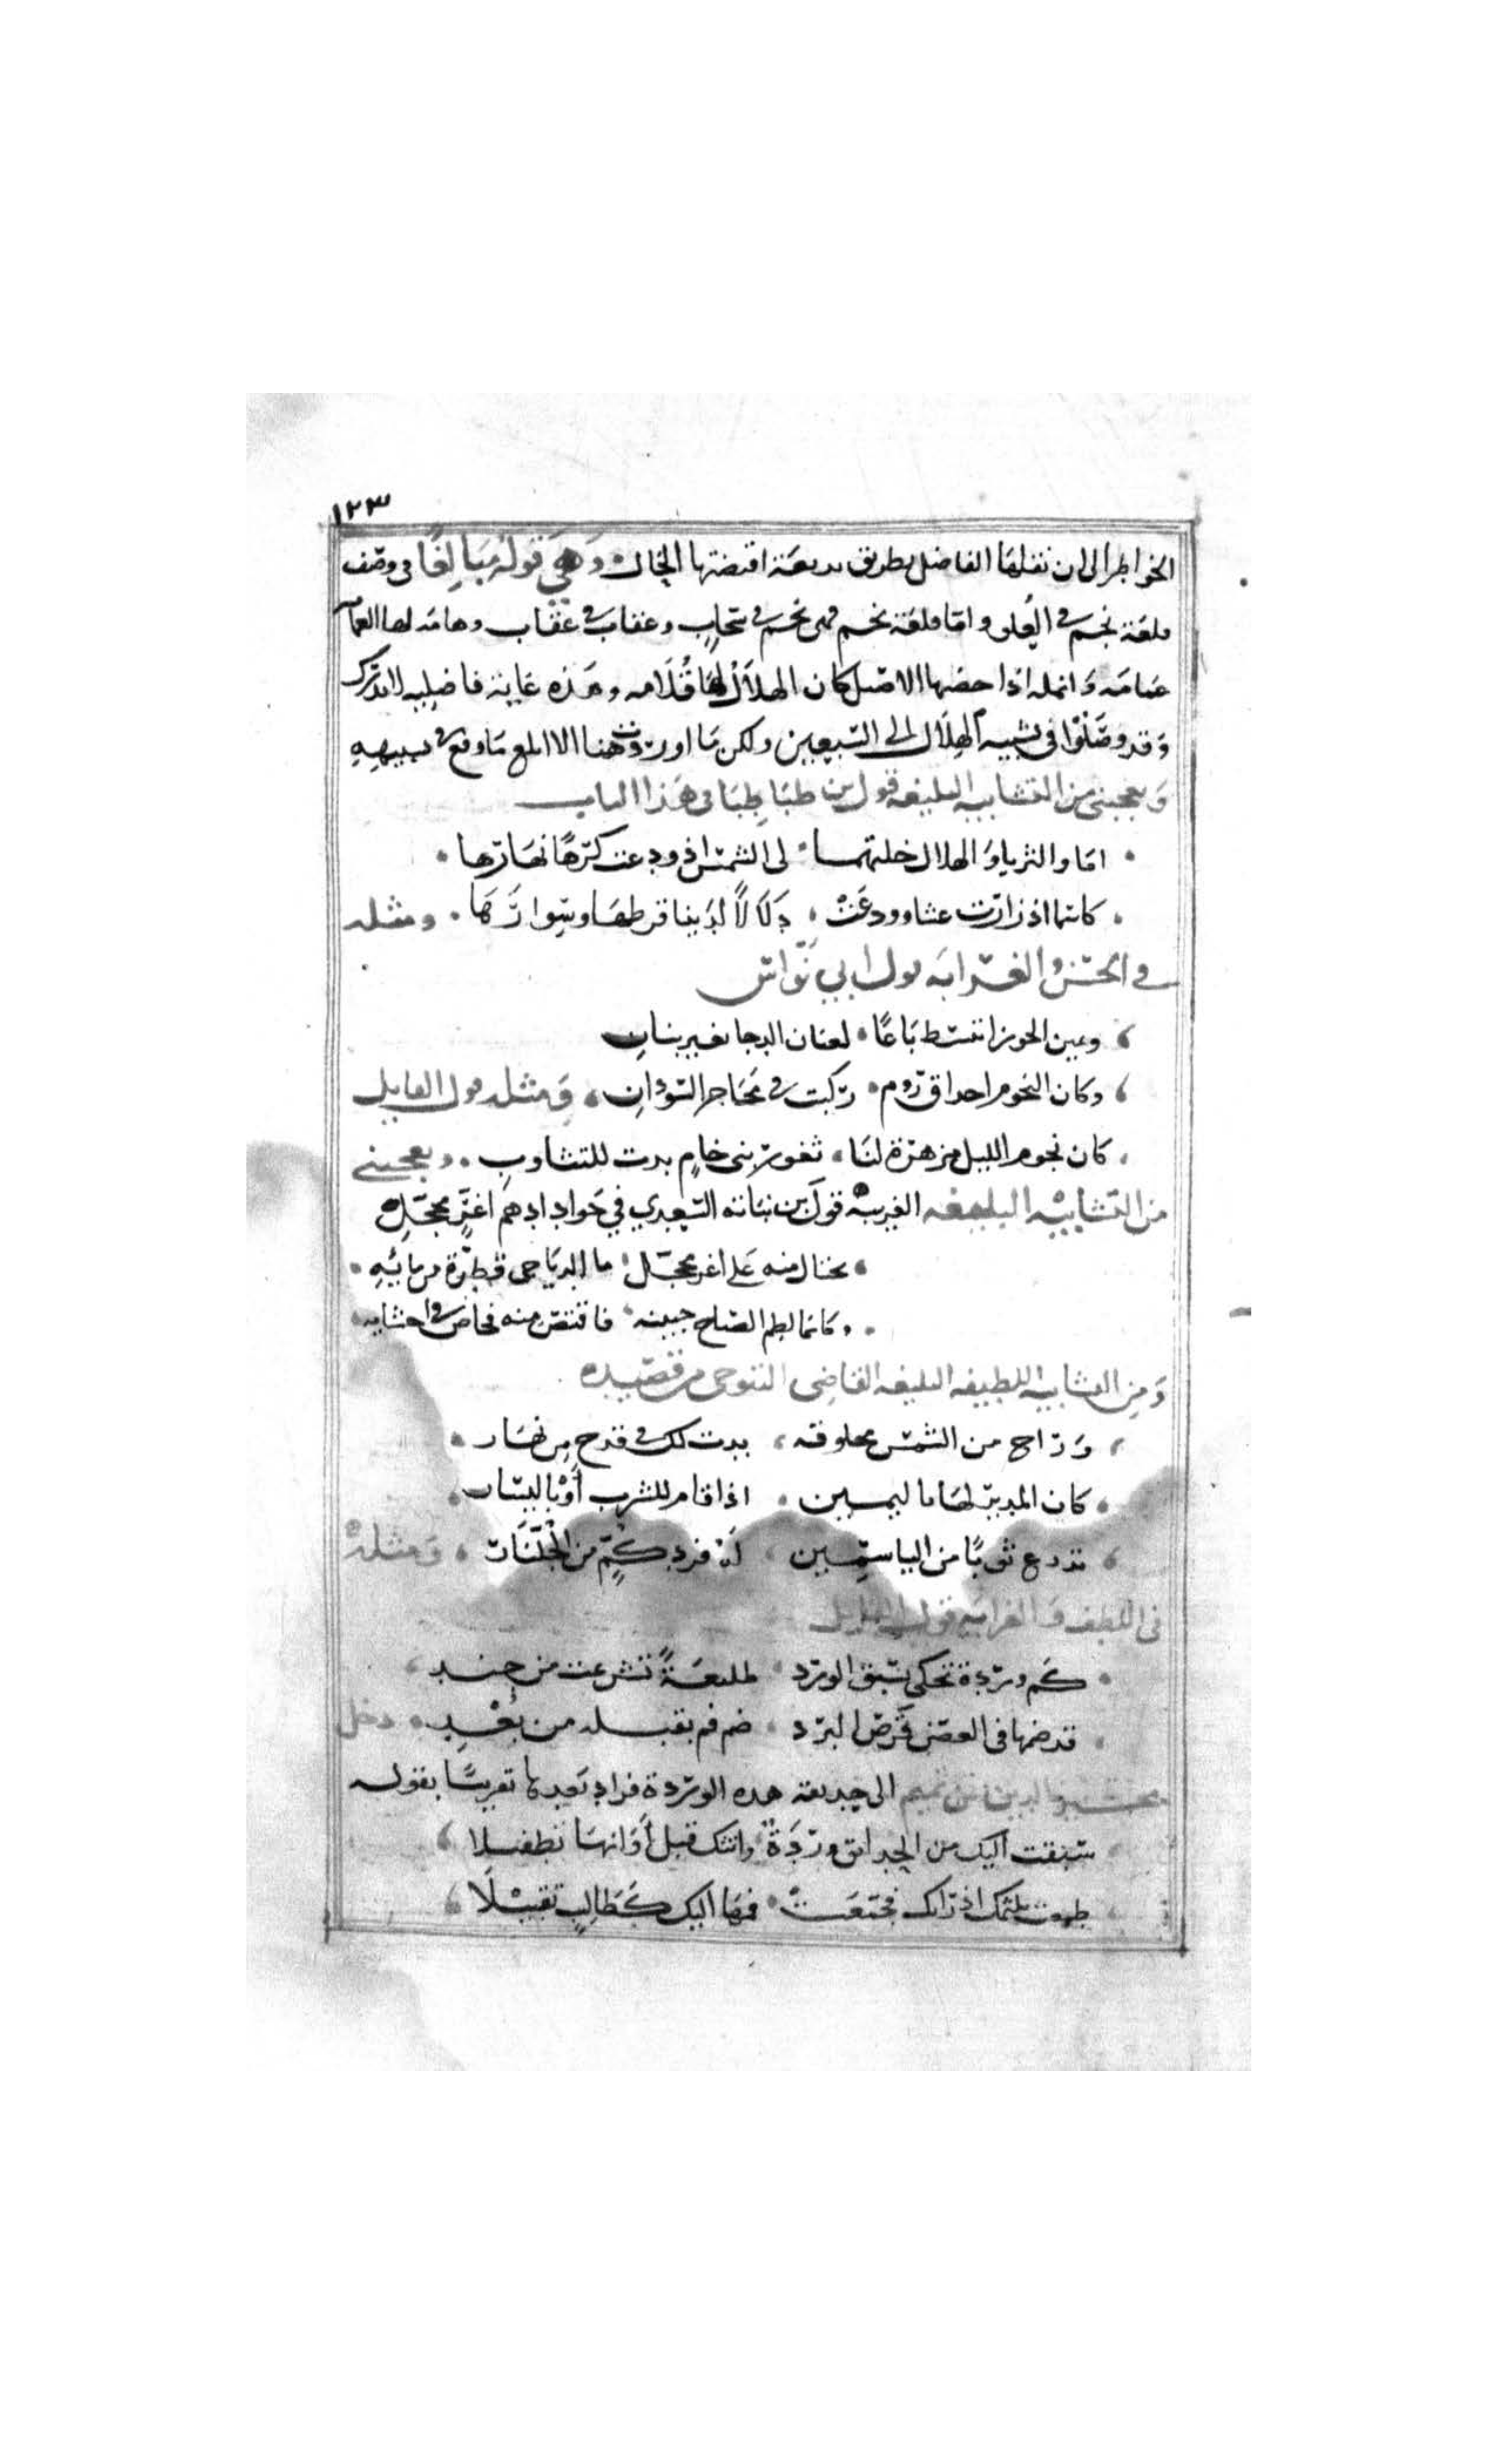 ١٢٣
الخواطر الى ان نقلها الفاضل بطريق بديعة اقتضتها الحال وهي قوله مبالغا في وصف
قلعة نجم في العلو واما قلعة نجم فهي نجم في سحاب وعقاب في عقاب وهامة لها الغمام
عمامه وانمله اذا خضبها الاصيل كان الهلال لها قلامه وهذه غاية فاضليه لا تدرك
وقد وصّلوا في تشبيه الهلال الى السبعين ولكن ما اوردت هنا الا المع ما وقع في تشبيهه
ويعجبني من التشابيه البليغه قول بن طباطبا في هذا الباب
اما والثريا والهلال خلتهما لي الشمس اذ ودعت كرها نهارها
كاسما اذ زارت عشا وودعت دلالا لدينا قرطها وسوارها ومثله
في الحسن والغرابه قول ابي نواس
ويمين الجوزا تبسط باعا لعنان الدجا بغير بنان
وكان النجوم احداق روم ركبت في محاجر السودان ومثله قول القايل
كان نجوم الليل من هزة لنا ثغور بني حام بدت للتثاوب ويعجبني
من التشابيه البليغه الغريبة قول بن نباته السعدي في جواد ادهم اغر محجل
نختال منه على اغر محجل ما الدياجي قطرة من مائه
وكانما لطم الصباح جبينه فاقتص منه فخاض في احشايه
ومن التشابيه اللطيفه البليغه القاضي التنوخي من قصيده
وراح من الشمس مخلوقه بدت لك في قدح من نهار
كان المدير لها باليمين اذا قام للشرب او باليسار
تدرع ثوبا من الياسمين له فرد كم من الجلنار ومثله
في اللطف والغرابه قول
كم وردة تحكي بسبق الورد طليعة تشرعت من جند
قد ضمها في الغصن قرص البرد ضم فم بقبله من بعد دخل
الدين بن تميم الى حديقة هذه الوردة فزاد بعدها تقريبا بقوله
سبقت اليك من الحدائق وردة واتتك قبل اوانها تطفيلا
طمعت بلثمك اذ راتك فجمعت فمها اليك كطالب تقبيلا